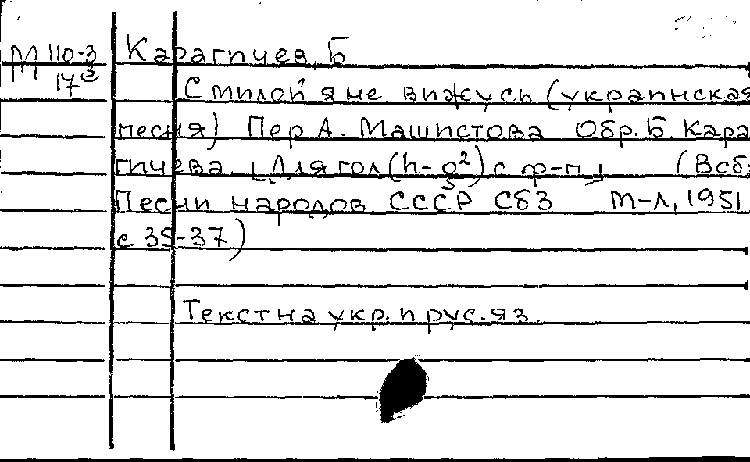 М 110-3 Карагичев, Б
17³
С милой я не вижусь (украинская
песня) Пер А. Машистова Обр. Б. Кара
гичева [Для гол (h-g²) с ф-п] (В сб:
Песни народов СССР Сб 3 М-Л, 1951
с 35-37)
Текст на укр. и рус. яз.